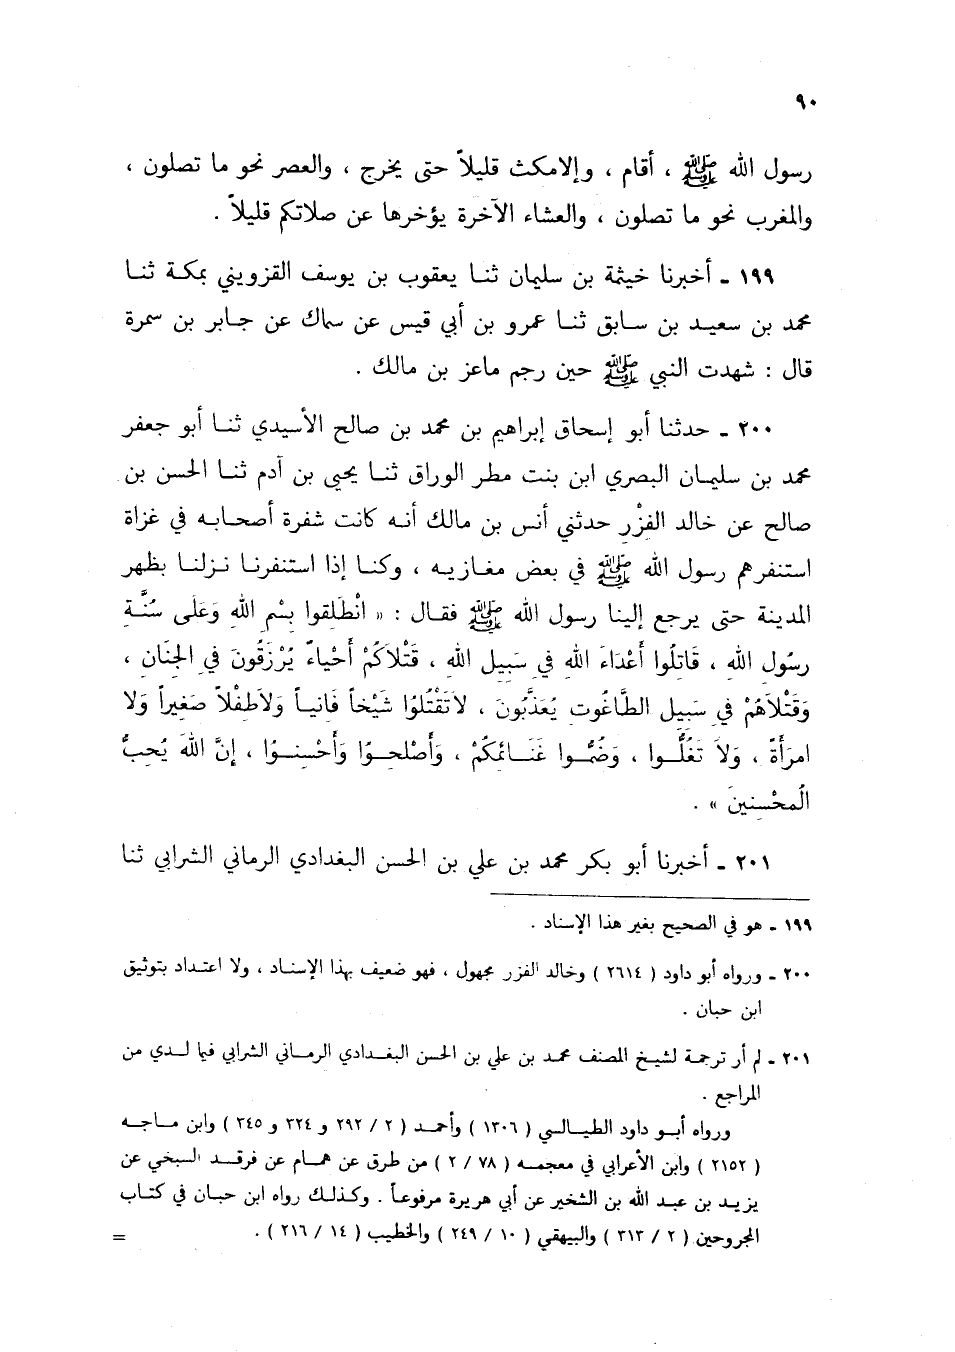 ٩٠
رسول الله ﷺ ، أقام ، وإلامكث قليلاً حتى يخرج ، والعصر نحو ما تصلون ،
والمغرب نحو ما تصلون ، والعشاء الآخرة يؤخرها عن صلاتكم قليلاً .
١٩٩ ـ أخبرنا خيثمة بن سليمان ثنا يعقوب بن يوسف القزويني بمكة ثنا
محمد بن سعيد بن سابق ثنا عمرو بن أبي قيس عن سماك عن جابر بن سمرة
قال : شهدت النبي ﷺ حين رجم ماعز بن مالك .
٢٠٠ ـ حدثنا أبو إسحاق إبراهيم بن محمد بن صالح الأسيدي ثنا أبو جعفر
محمد بن سليمان البصري ابن بنت مطر الوراق ثنا يحيى بن آدم ثنا الحسن بن
صالح عن خالد الفزْر حدثني أنس بن مالك أنه كانت شفرة أصحابه في غزاة
استنفرهم رسول الله ﷺ في بعض مغازيه ، وكنا إذا استنفرنا نزلنا بظهر
المدينة حتى يرجع إلينا رسول الله ﷺ فقال : « انْطَلِقوا بِسْمِ اللهِ وَعَلَى سُنَّةِ
رسُولِ اللهِ ، قَاتِلُوا أَعْدَاءَ اللهِ في سَبِيلِ اللهِ ، قَتْلَاكُمْ أَحْيَاءٌ يُرْزَقُونَ فِي الجِنَانِ ،
وَقَتْلَاهُمْ في سَبِيلِ الطَّاغُوتِ يُعَذَّبُونَ ، لاَتَقْتُلُوا شَيْخاً فَانِياً وَلاَطِفْلاً صَغِيراً وَلا
امرَأَةً ، وَلاَ تَغُلُّوا ، وَضُمُّوا غَنَائِمَكُمْ ، وَأَصْلِحُوا وَأَحْسِنُوا ، إِنَّ اللهَ يُحِبُّ
الُمحْسِنِينَ » .
٢٠١ ـ أخبرنا أبو بكر محمد بن علي بن الحسن البغدادي الرماني الشرابي ثنا
١٩٩ ـ هو في الصحيح بغير هذا الإسناد .
٢٠٠ ـ ورواه أبو داود ( ٢٦١٤ ) وخالد الفزر مجهول ، فهو ضعيف بهذا الإسناد ، ولا اعتداد بتوثيق
ابن حبان .
٢٠١ ـ لم أر ترجمة لشيخ المصنف محمد بن علي بن الحسن البغدادي الرماني الشرابي فيما لدي من
المراجع .
ورواه أبو داود الطيالسي ( ١٣٠٦ ) وأحمد ( ٢ / ٢٩٢ و ٣٢٤ و ٣٤٥ ) وابن ماجه
( ٢١٥٢ ) وابن الأعرابي في معجمه ( ٧٨ / ٢ ) من طرق عن همام عن فرقد السبخي عن
يزيد بن عبد الله بن الشخير عن أبي هريرة مرفوعاً . وكذلك رواه ابن حبان في كتاب
المجروحين ( ٢ / ٣١٣ ) والبيهقي ( ١٠ / ٢٤٩ ) والخطيب ( ١٤ / ٢١٦ ) .
=